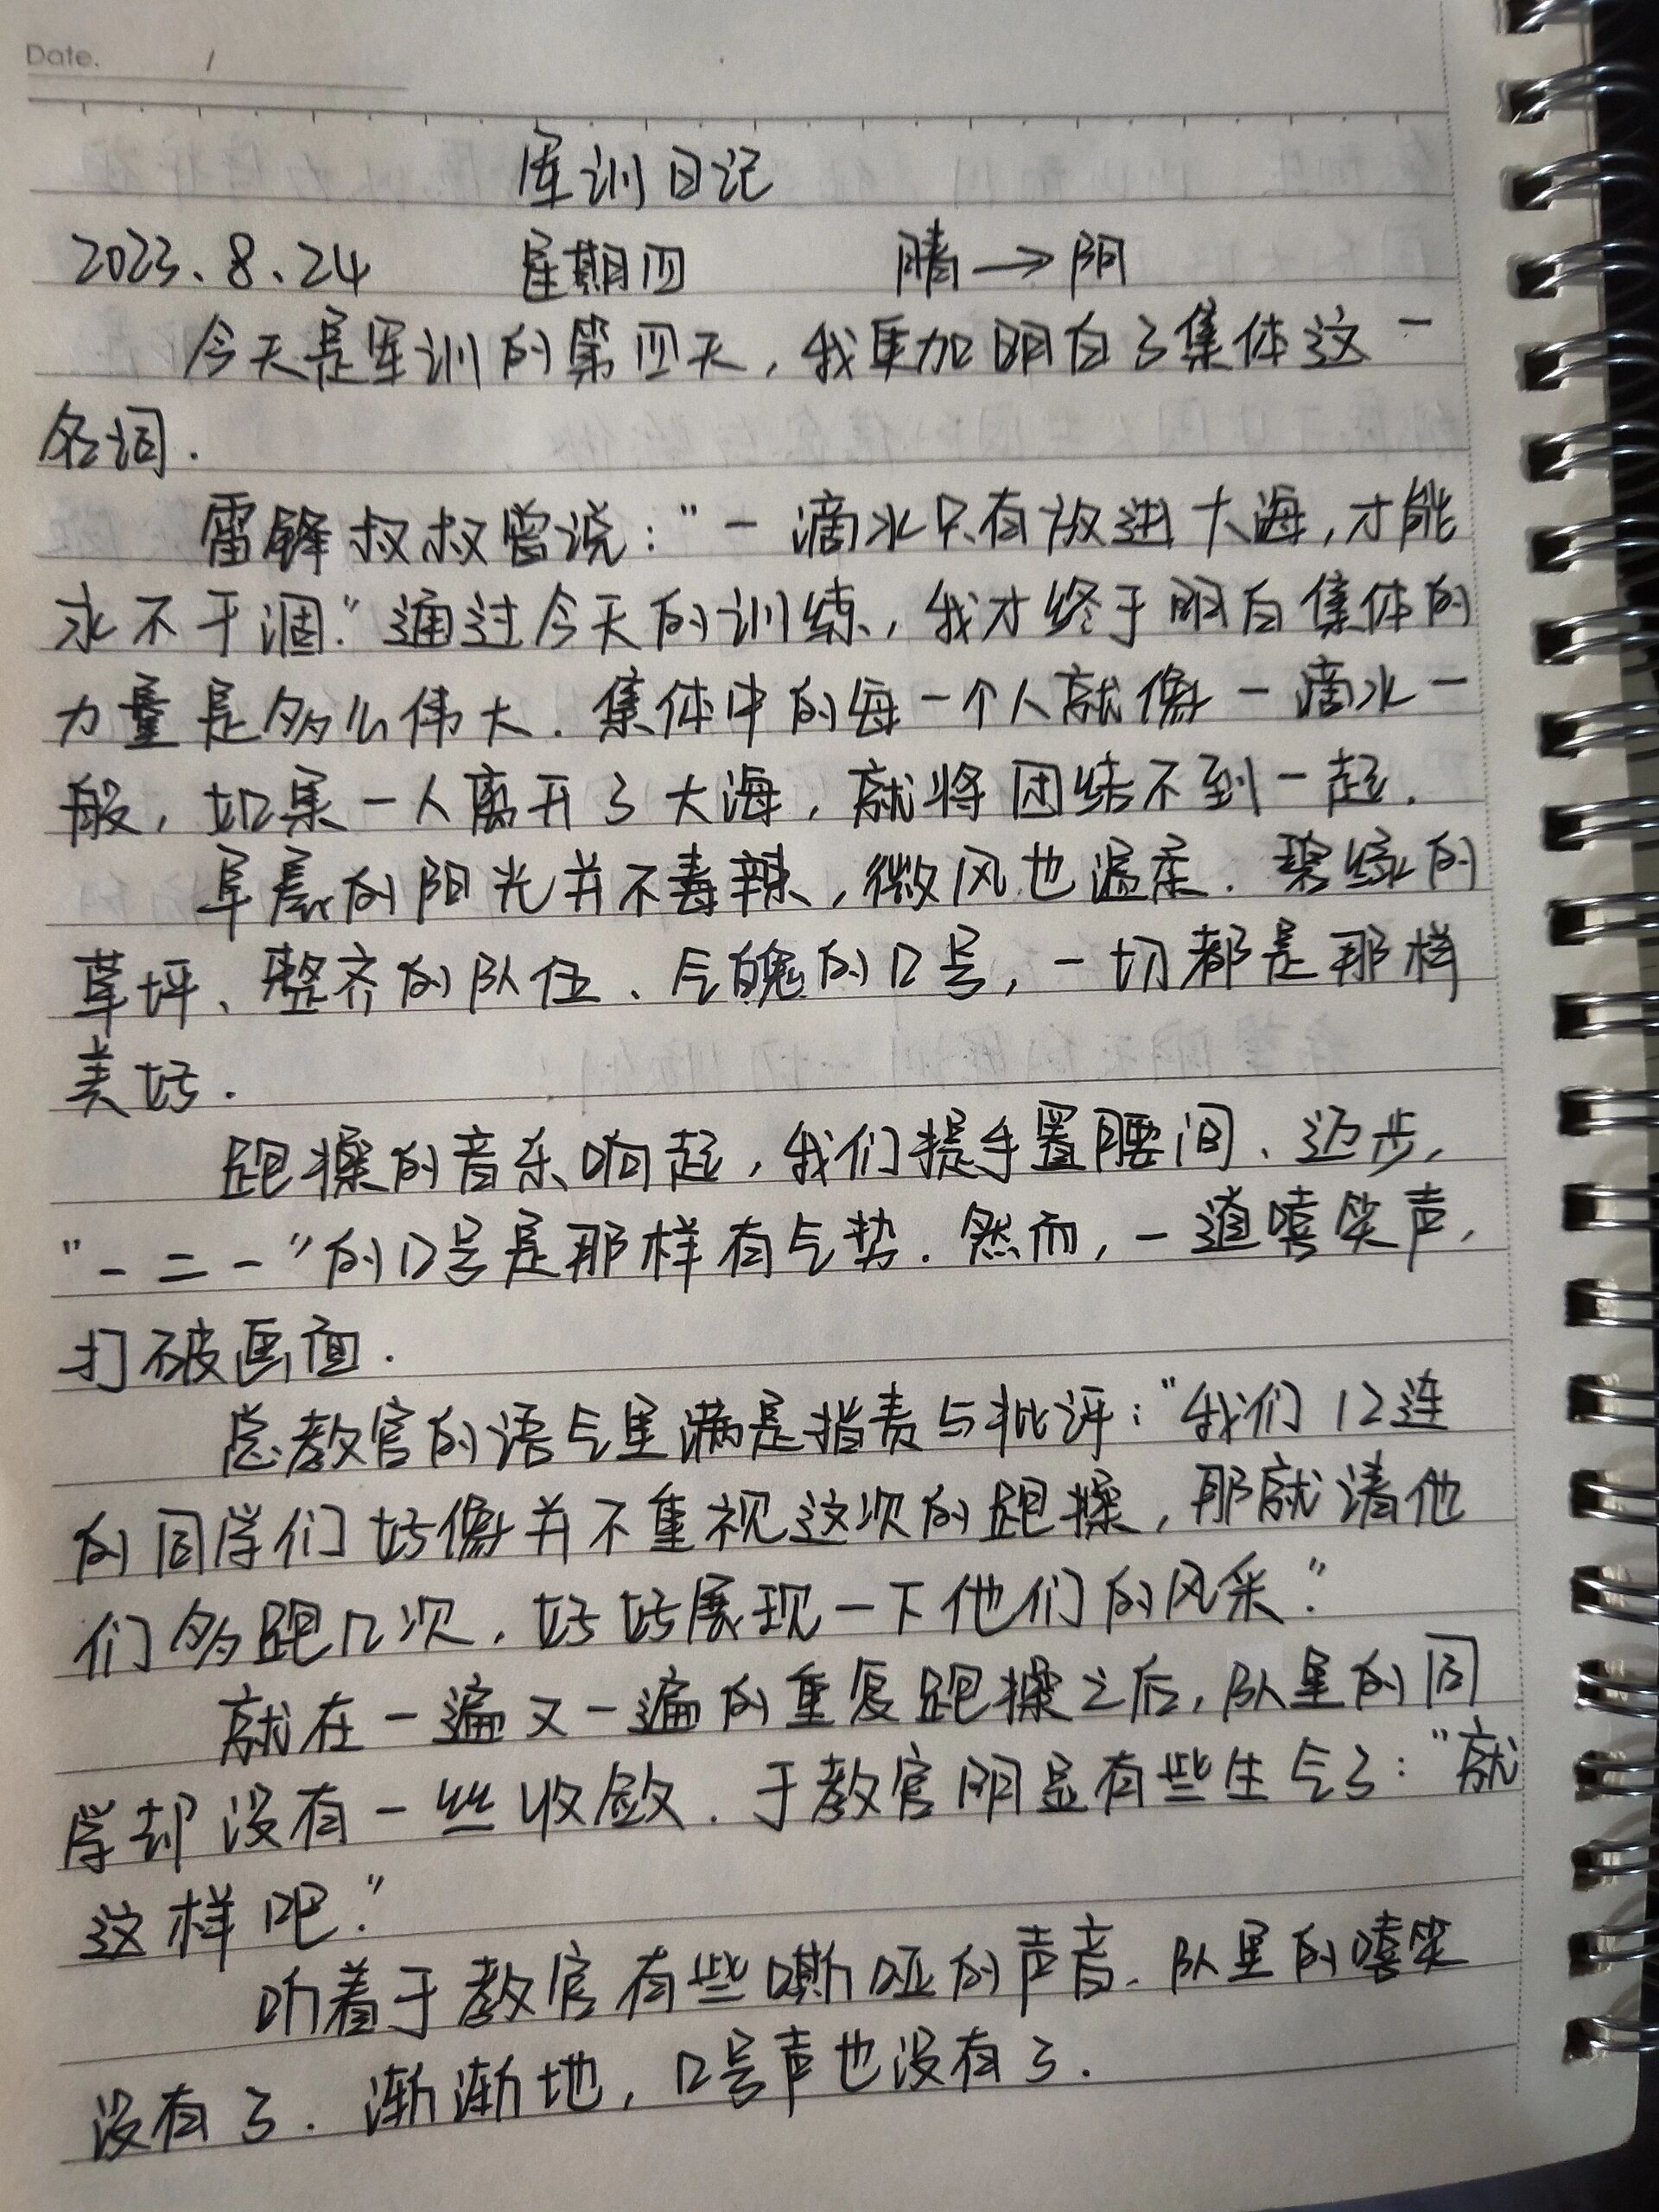 Date. /
军训日记
2023.8.24 星期四 晴→阴
今天是军训的第四天,我更加明白了集体这一
名词.
雷锋叔叔曾说:"一滴水只有放进大海,才能
永不干涸."通过今天的训练,我才终于明白集体的
力量是多么伟大.集体中的每一个人就像一滴水一
般,如果一人离开了大海,就将团结不到一起.
早晨的阳光并不毒辣,微风也温柔.碧绿的
草坪、整齐的队伍、气魄的口号,一切都是那样
美好.
跑操的音乐响起,我们提手置腰间、迈步,
"一二一"的口号是那样有气势.然而,一道嘻笑声,
打破画面.
总教官的语气里满是指责与批评:"我们12连
的同学们好像并不重视这次的跑操,那就请他
们多跑几次,好好展现一下他们的风采."
就在一遍又一遍的重复跑操之后,队里的同
学却没有一丝收敛.于教官明显有些生气了:"就
这样吧."
听着于教官有些嘶哑的声音.队里的嘻笑
没有了.渐渐地,口号声也没有了.